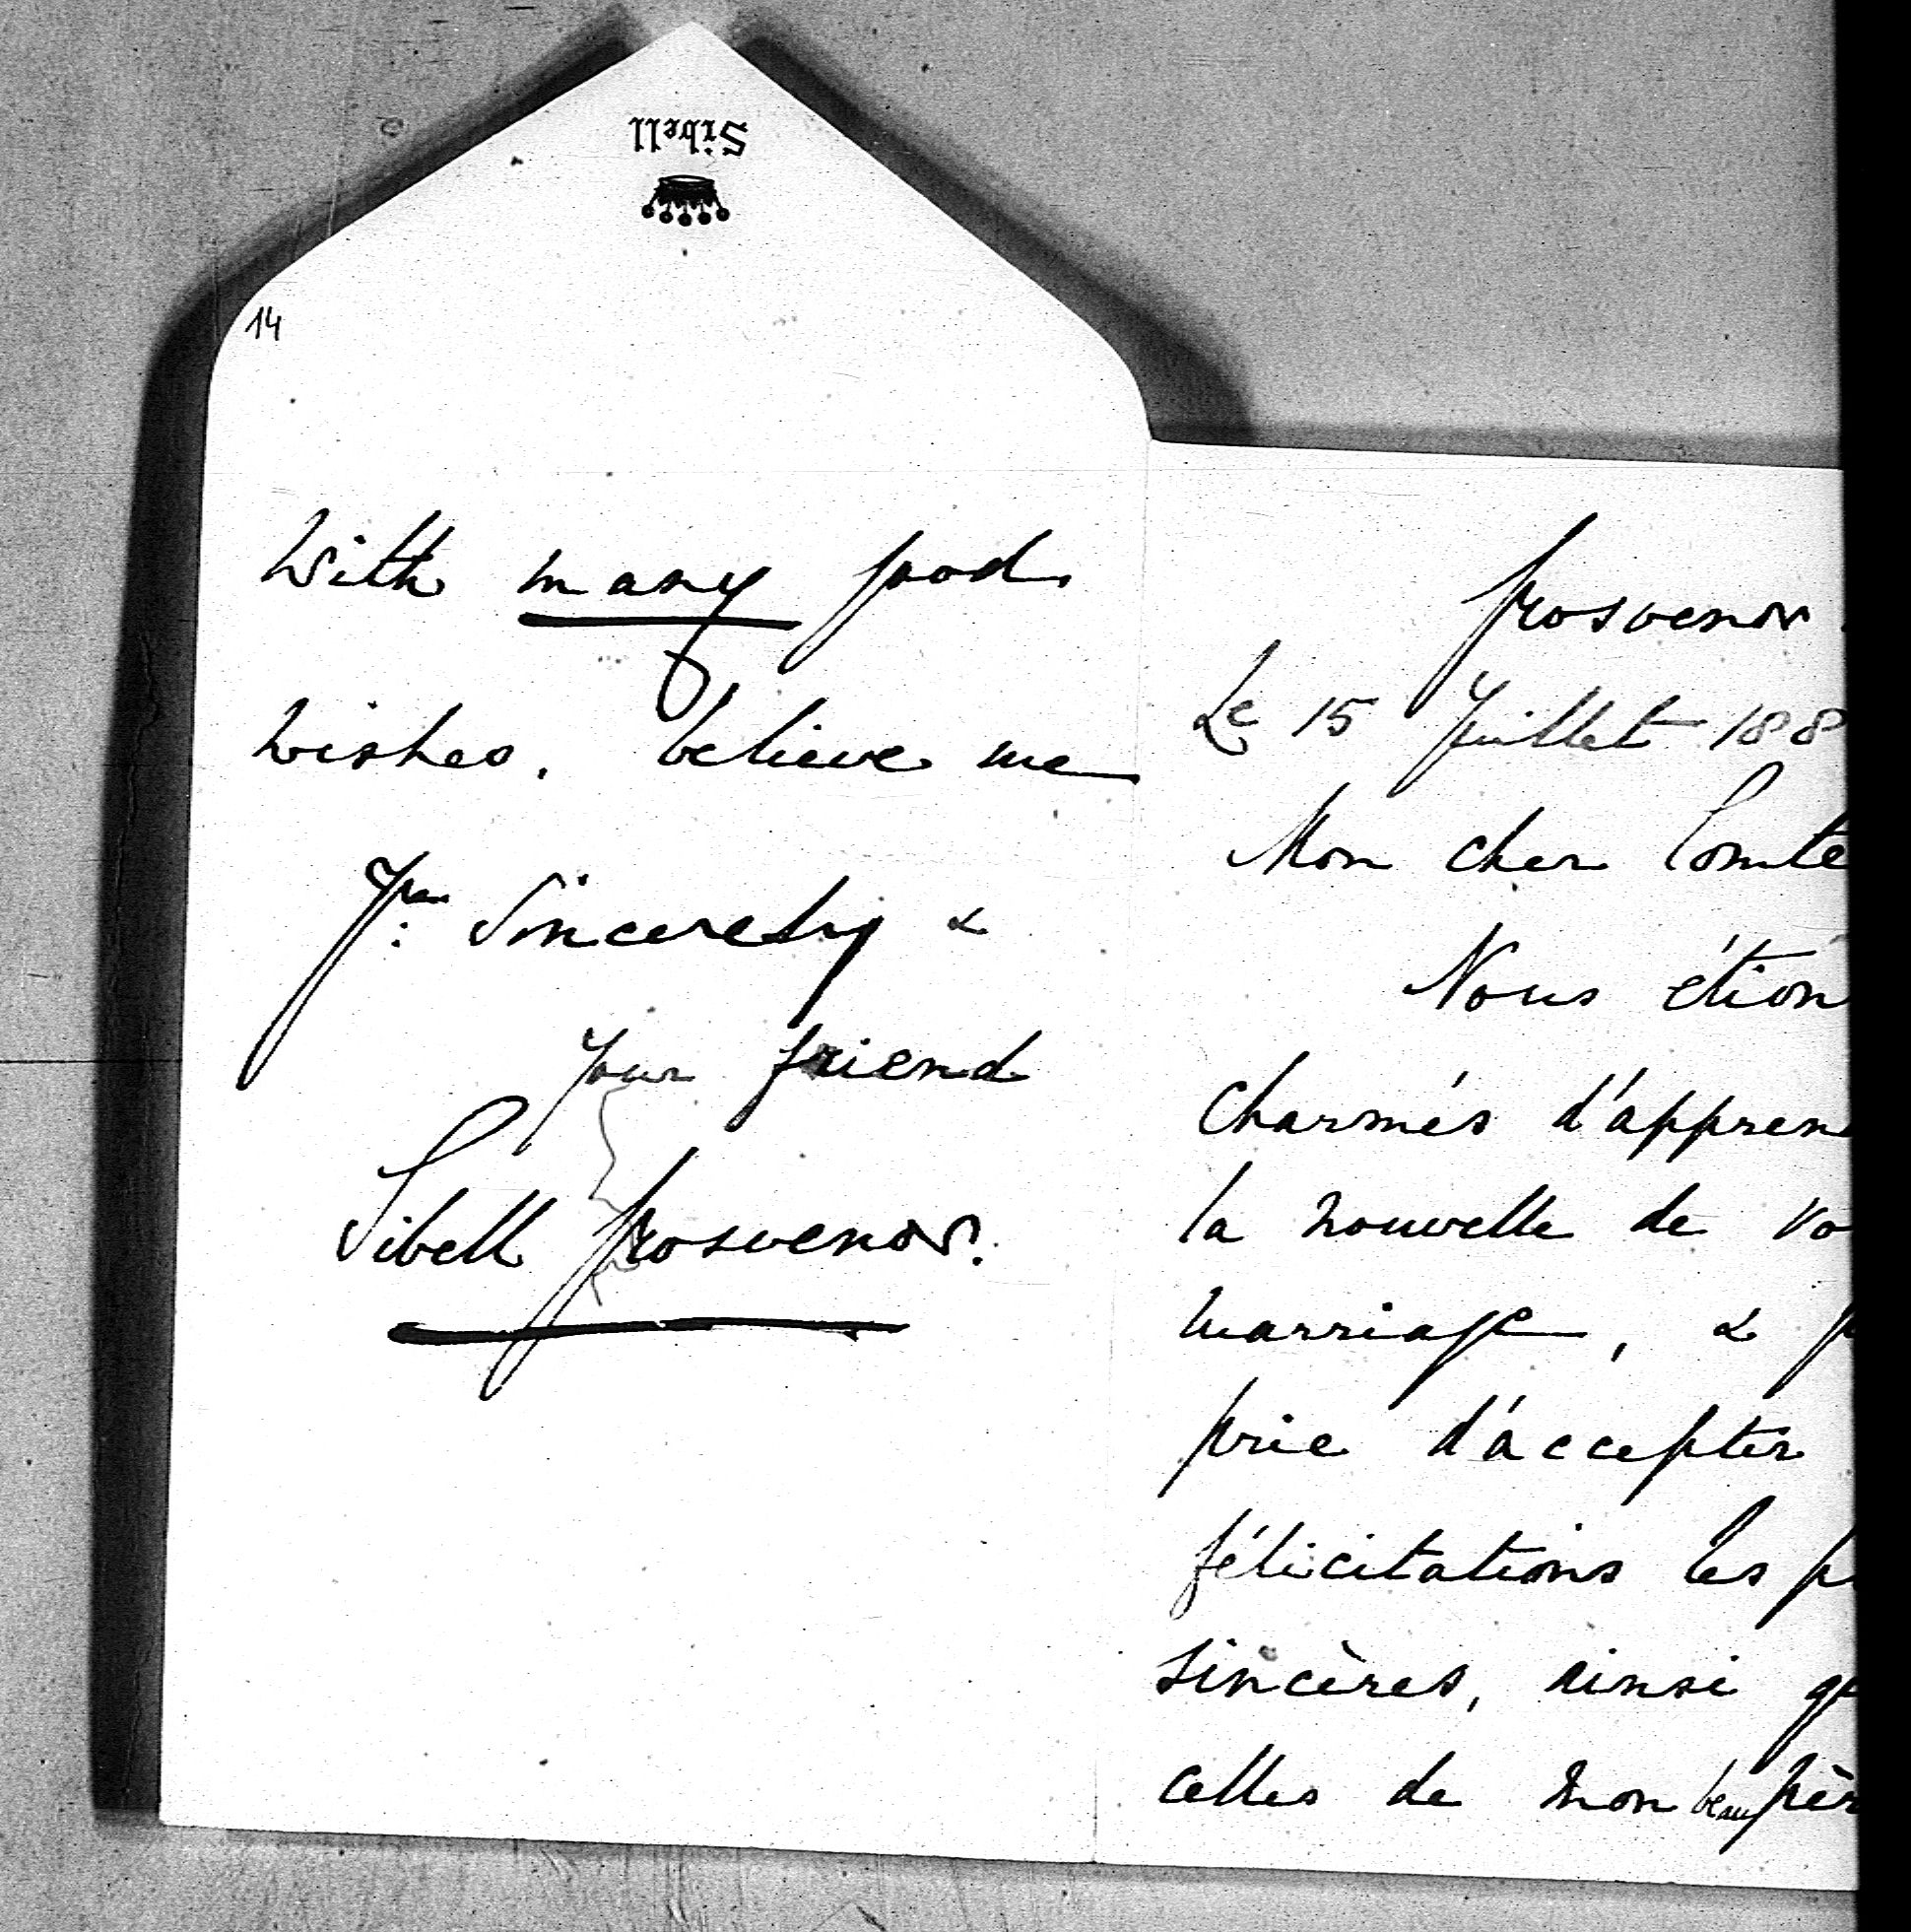 Sibell
14
With many good
wishes. believe me
Yrs: Sincerely &
your friend
Sibell Grosvenor.
Grosvenor.
Le 15 Juillet 188
Mon cher Comte
Nous étion
charmés d'appren
la nouvelle de vo
marriage, &
prie d'accepter
félicitations les p
sincères, ainsi q
celles de mon beau pèr